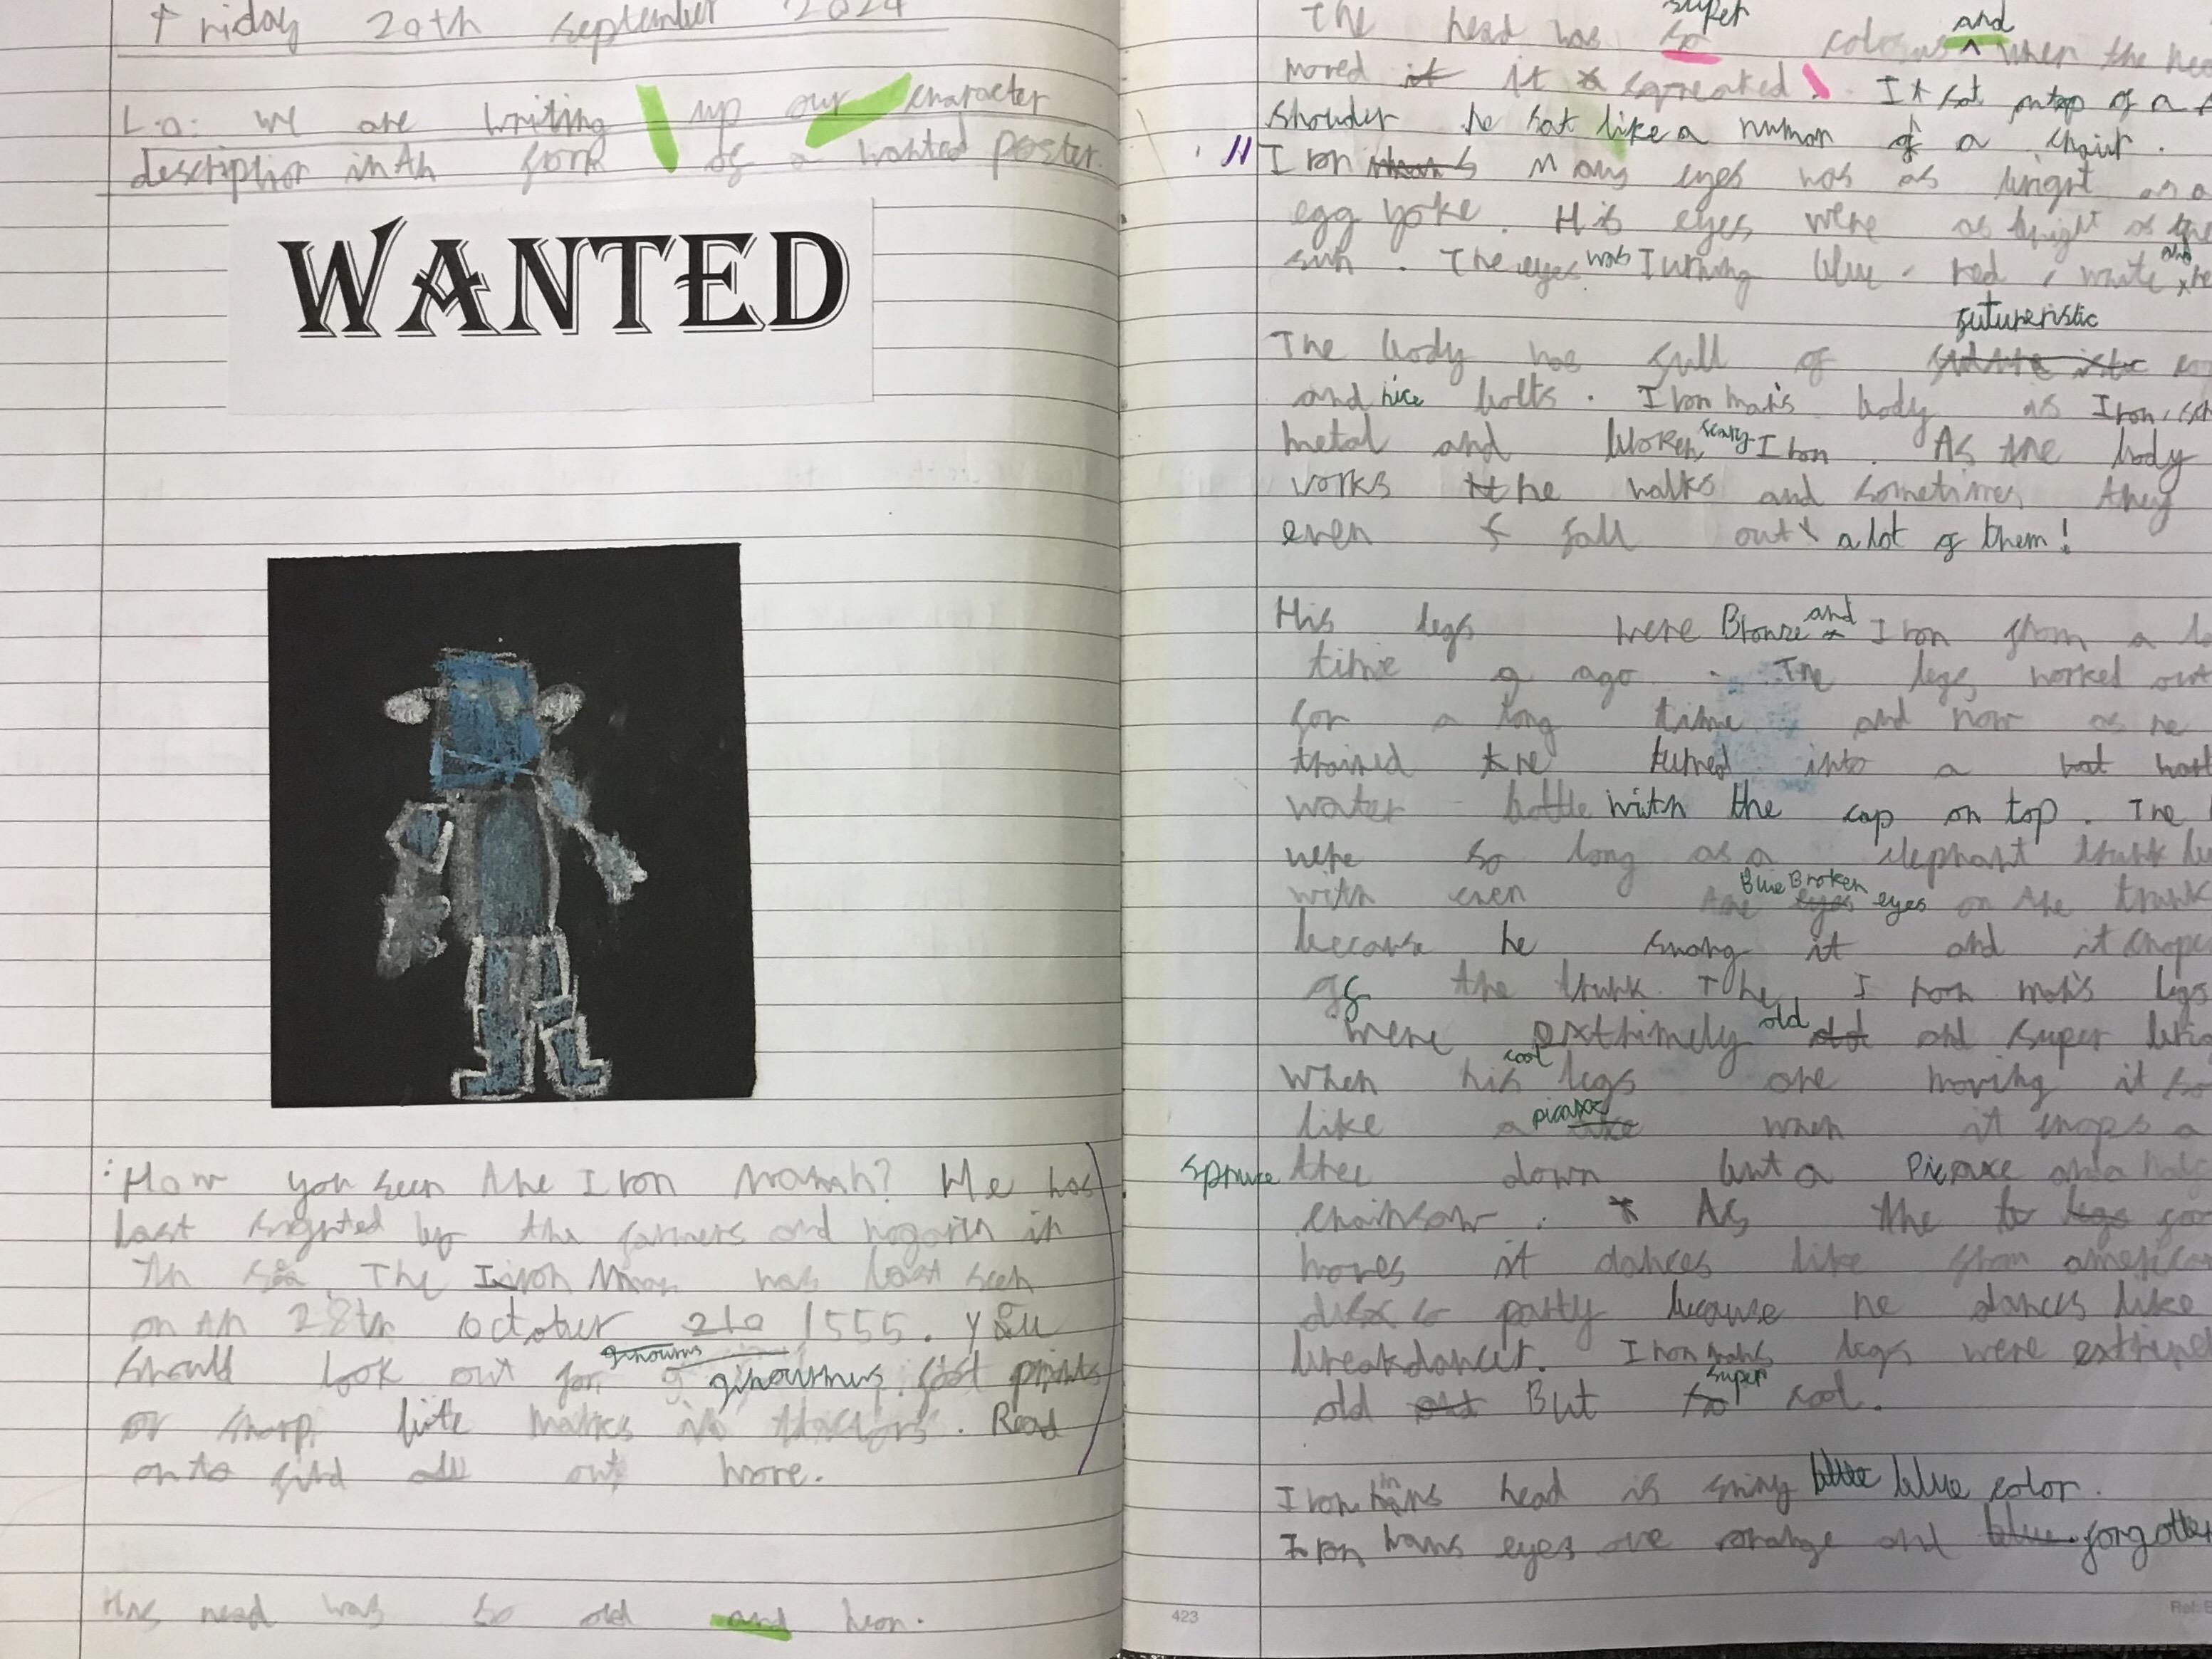 Friday 20th September 2024
L.O: We are writing up our character
description in An form of a wanted poster.
WANTED
How you seen the Iron Manah? He has
last sighted by the farmers and hogarth in
the sea. The Iron Man has last seen
on th 28th October 210 1555. You
should look out for ginourmus foot prints
or sharp bite marks in tractors. Read
onto find all out more.
His head was so old and
super
and
The head was so colosus ^ when the
moved it it squeaked. It sat ontop of a
shoulder he sat like a human of a chair.
// Iron Mans eyes was as bright as a
egg yoke. His eyes were as bright as the
sun. The eyes was Turning blue, red, white and
futureristic
The body was full of
and nice bolts. Iron man's body as Iron,
metal and broken, scary Iron. As the body
works he walks and sometimes they
even fall out a lot of them!
His legs were Bronze and Iron from a
time ago. The legs worked out
for a long time and now as he
trained he turned into a hot
water bottle with the cap on top. The
were so long as a elephant trunk
Blue Broken
with even the eyes eyes on the trunk
because he swang it and it
off the trunk. The Iron man's legs
were extrimely old and super
cool
When his legs are moving it
like a picaxe when it chops a
spruce tree down but a Picaxe and a
chainsaw. As the legs
moves it dances like from american
disco party because he dances like
breakdancer. Iron mans legs were
super
old But so cool.
Iron mans head is shiny blue blue color.
Iron mans eyes are orange and blue.
423